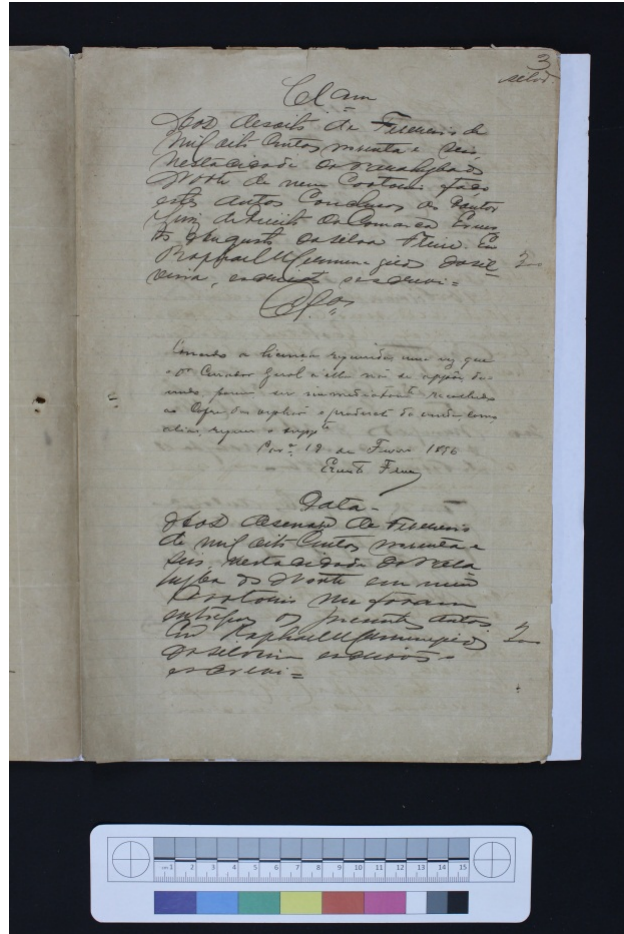 3
Clam
Aos desoito de Fevereiro de
mil oito Centos noventa e seis
nesta cidade da Parahyba do
Norte de meu Cartorio faço
estes autos Conclusos ao Doutor
Juiz de Direito da Comarca Ernes
to Augusto da Silva Freire. Eu
Raphael Hermenegildo da Sil
veira, escrivão o escrevi =
Clos
Concedo a licença requerida uma vez que
o Dr Curador Geral a ella não se oppõe, de
vendo, porem ser immediatamente recolhido
ao Cofre dos orphãos o producto da venda, como
requer o suppte
19 de Fever 1896
Ernesto Freire
Data =
Aos desenove de Fevereiro
de mil oito Centos noventa e
seis, nesta cidade da Para
hyba do Norte em meu
Cartorio me foram
entregues os presentes autos
Eu Raphael Hermenegildo
da Silveira escrivão o
escrevi =